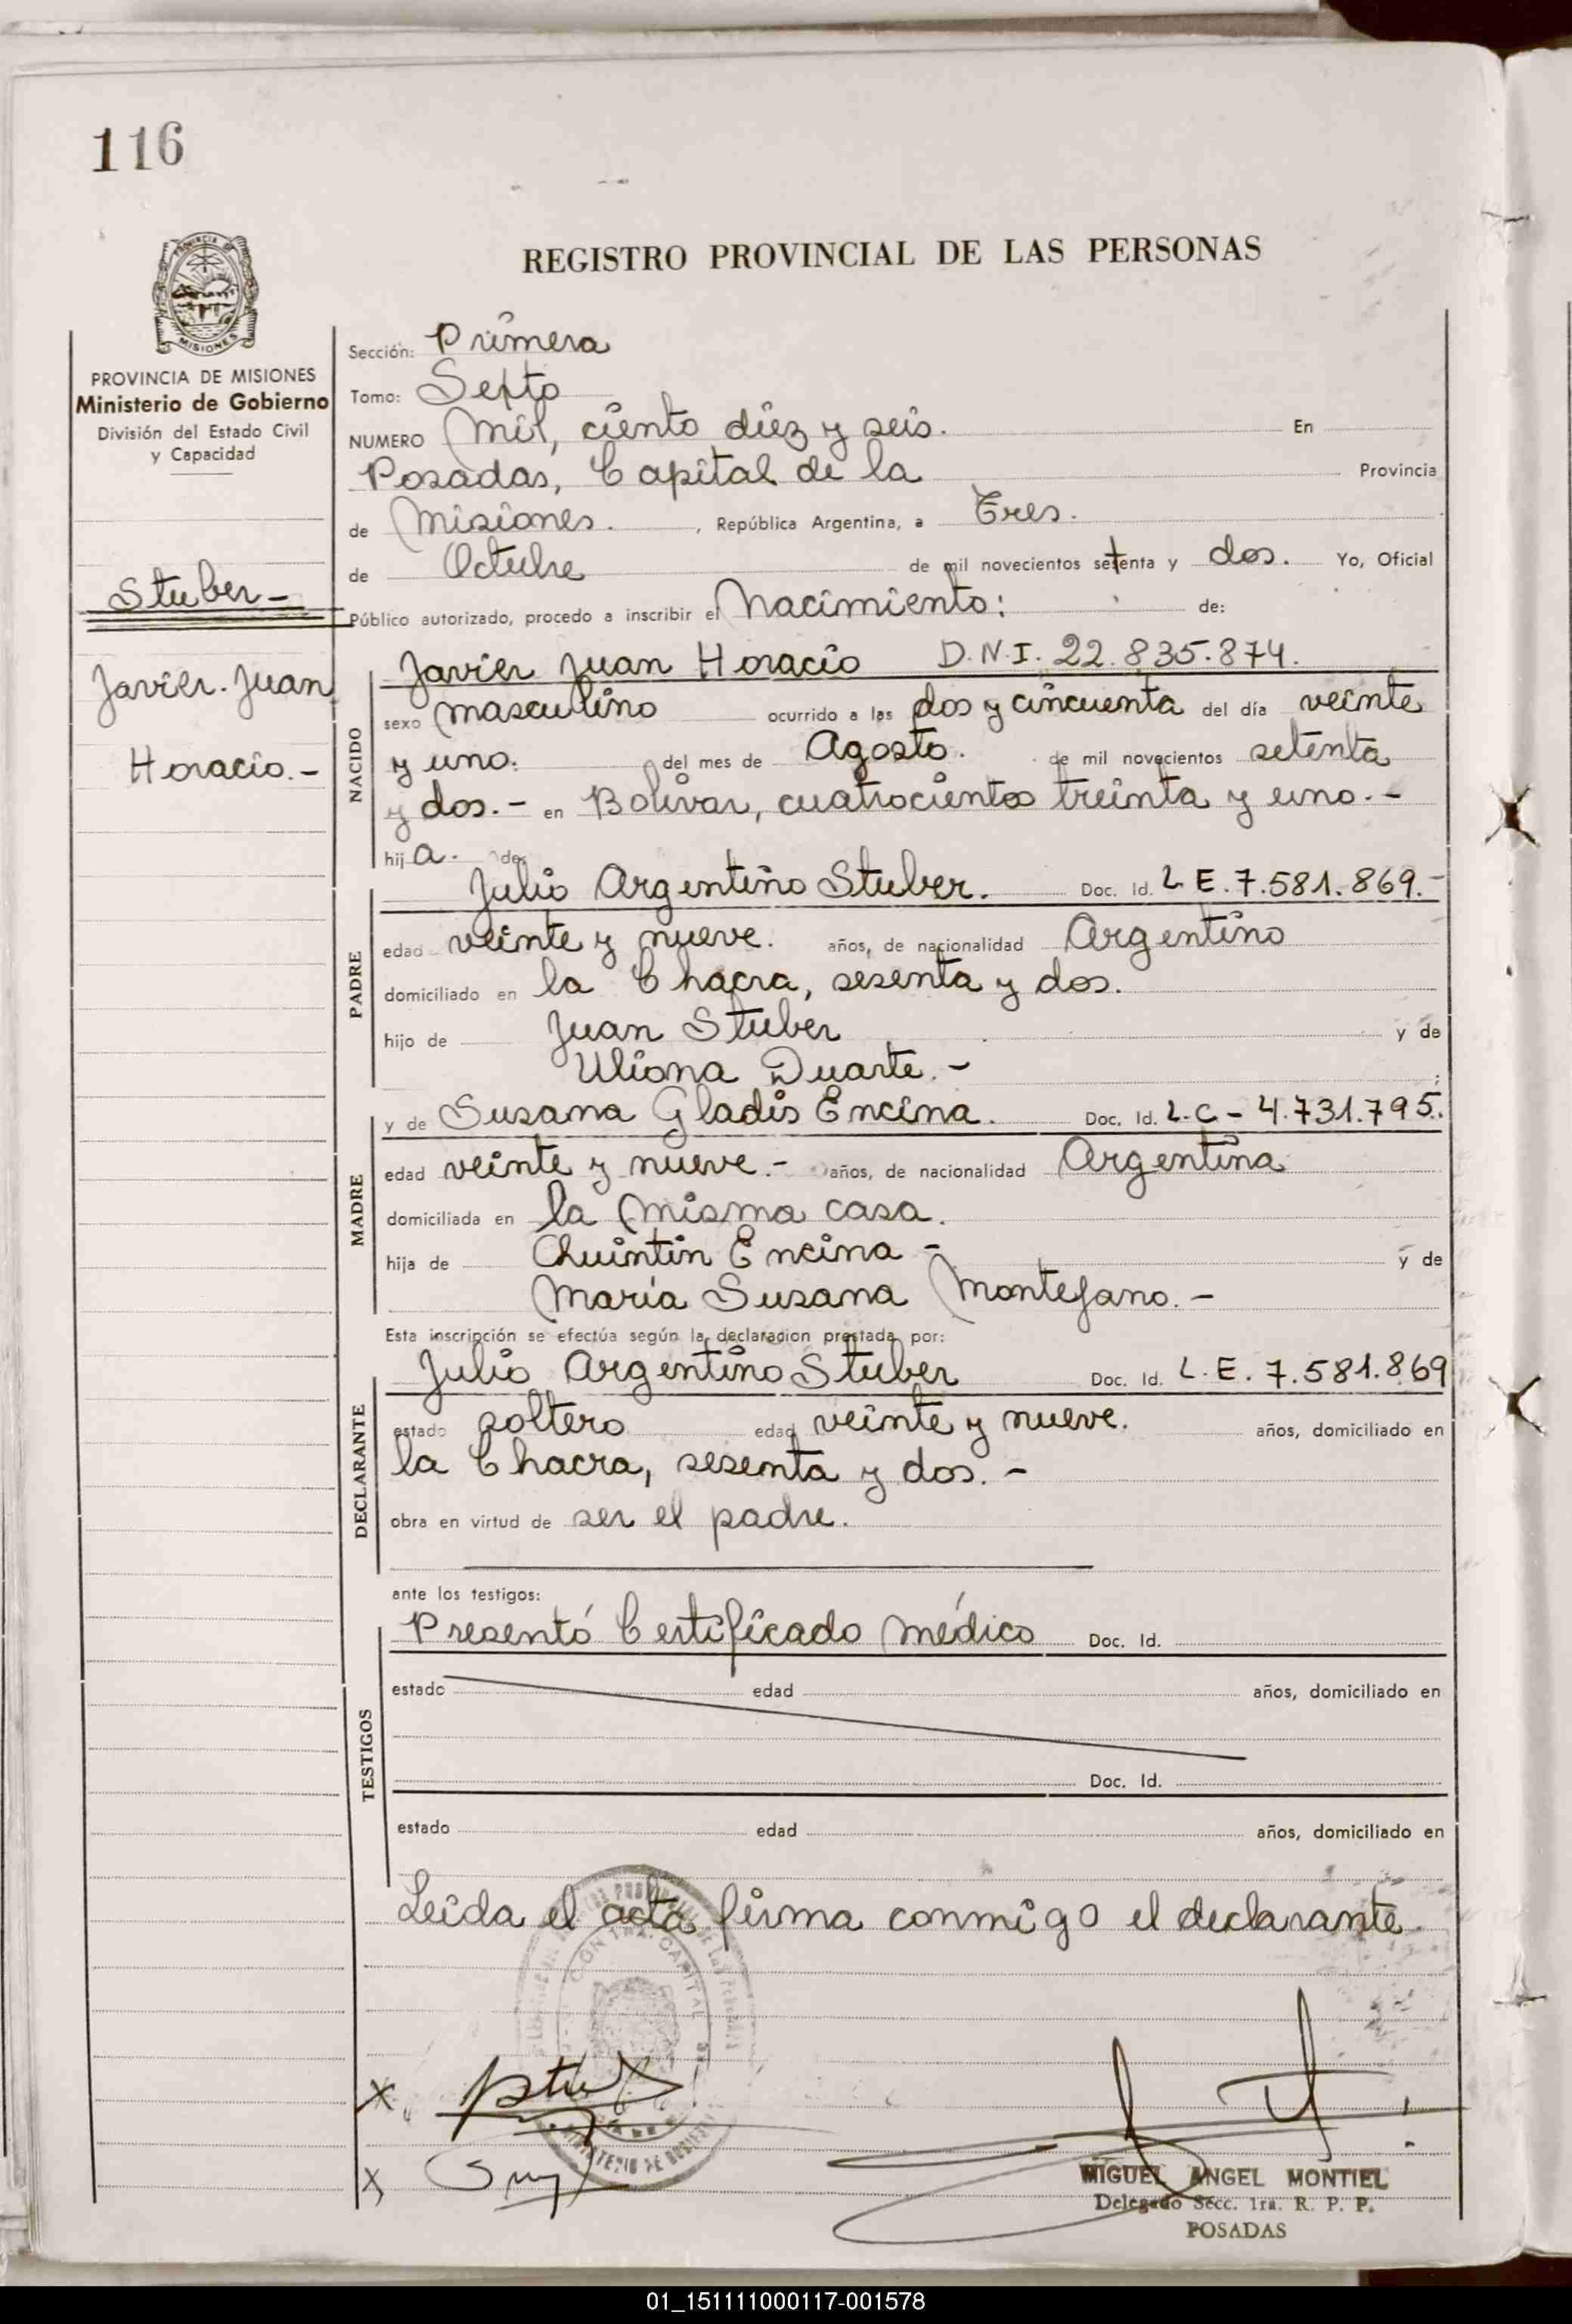 116
REGISTRO PROVINCIAL DE LAS PERSONAS
PROVINCIA DE MISIONES
Ministerio de Gobierno
División del Estado Civil
y Capacidad
Stuber -
Javier. Juan
Horacio. -
Sección: Primera
Tomo: Sexto
NUMERO Mil, ciento diez y seis. En
Posadas, Capital de la Provincia
de Misiones. , República Argentina, a Tres.
de Octubre de mil novecientos setenta y dos. Yo, Oficial
Público autorizado, procedo a inscribir el Nacimiento: de:
NACIDO
Javier Juan Horacio D.N.I. 22.835.874.
sexo masculino ocurrido a las dos y cincuenta del día veinte
y uno. del mes de Agosto. de mil novecientos setenta
y dos. - en Bolívar, cuatrocientos treinta y uno. -
hij a. de
PADRE
Julio Argentino Stuber. Doc. Id. L E. 7.581.869. -
edad veinte y nueve. años, de nacionalidad Argentino
domiciliado en la Chacra, sesenta y dos.
hijo de Juan Stuber y de
Uliona Duarte. - ;
MADRE
y de Susana Gladis Encina. Doc. Id. L.C - 4.731.795.
edad veinte y nueve. - años, de nacionalidad Argentina
domiciliada en la misma casa.
hija de Quintin Encina - y de
María Susana Montejano. -
Esta inscripción se efectúa según la declaracion prestada por:
DECLARANTE
Julio Argentino Stuber Doc. Id. L.E. 7.581.869
estado soltero edad veinte y nueve. años, domiciliado en
la Chacra, sesenta y dos. -
obra en virtud de ser el padre.
ante los testigos:
TESTIGOS
Presentó Certificado médico Doc. Id.
estado edad años, domiciliado en
Doc. Id.
estado edad años, domiciliado en
Leída el acta firma conmigo el declarante.
MIGUEL ANGEL MONTIEL
Delegado Secc. 1ra. R. P. P.
POSADAS
01_151111000117-001578